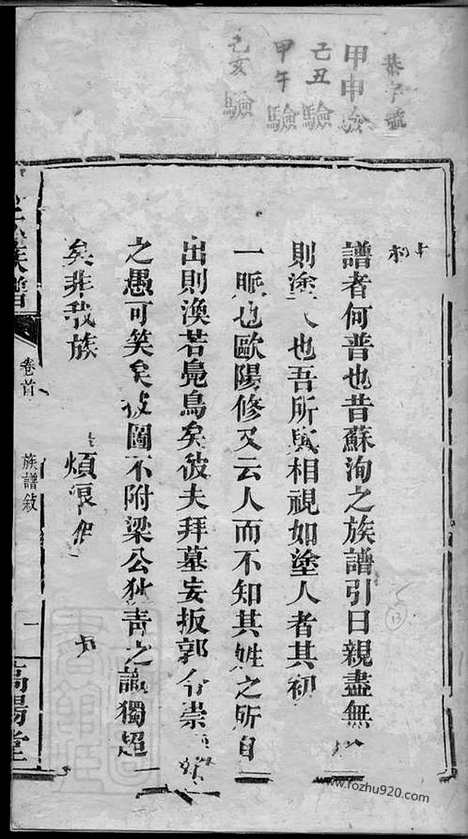 恭字號
甲申驗
己丑驗
甲午驗
己亥驗
譜者何普也昔蘇洵之族譜引曰親盡無
則塗人也吾所與相視如塗人者其初
一脈也歐陽修又云人而不知其姓之所自
出則渙若鳧鳥矣彼夫拜墓妄扳郭令崇
之愚可笑矣披圖不附梁公狄青之識獨超
矣非我族
煩
族譜
卷首
族譜敘
一
高陽堂
www.fozhu920.com